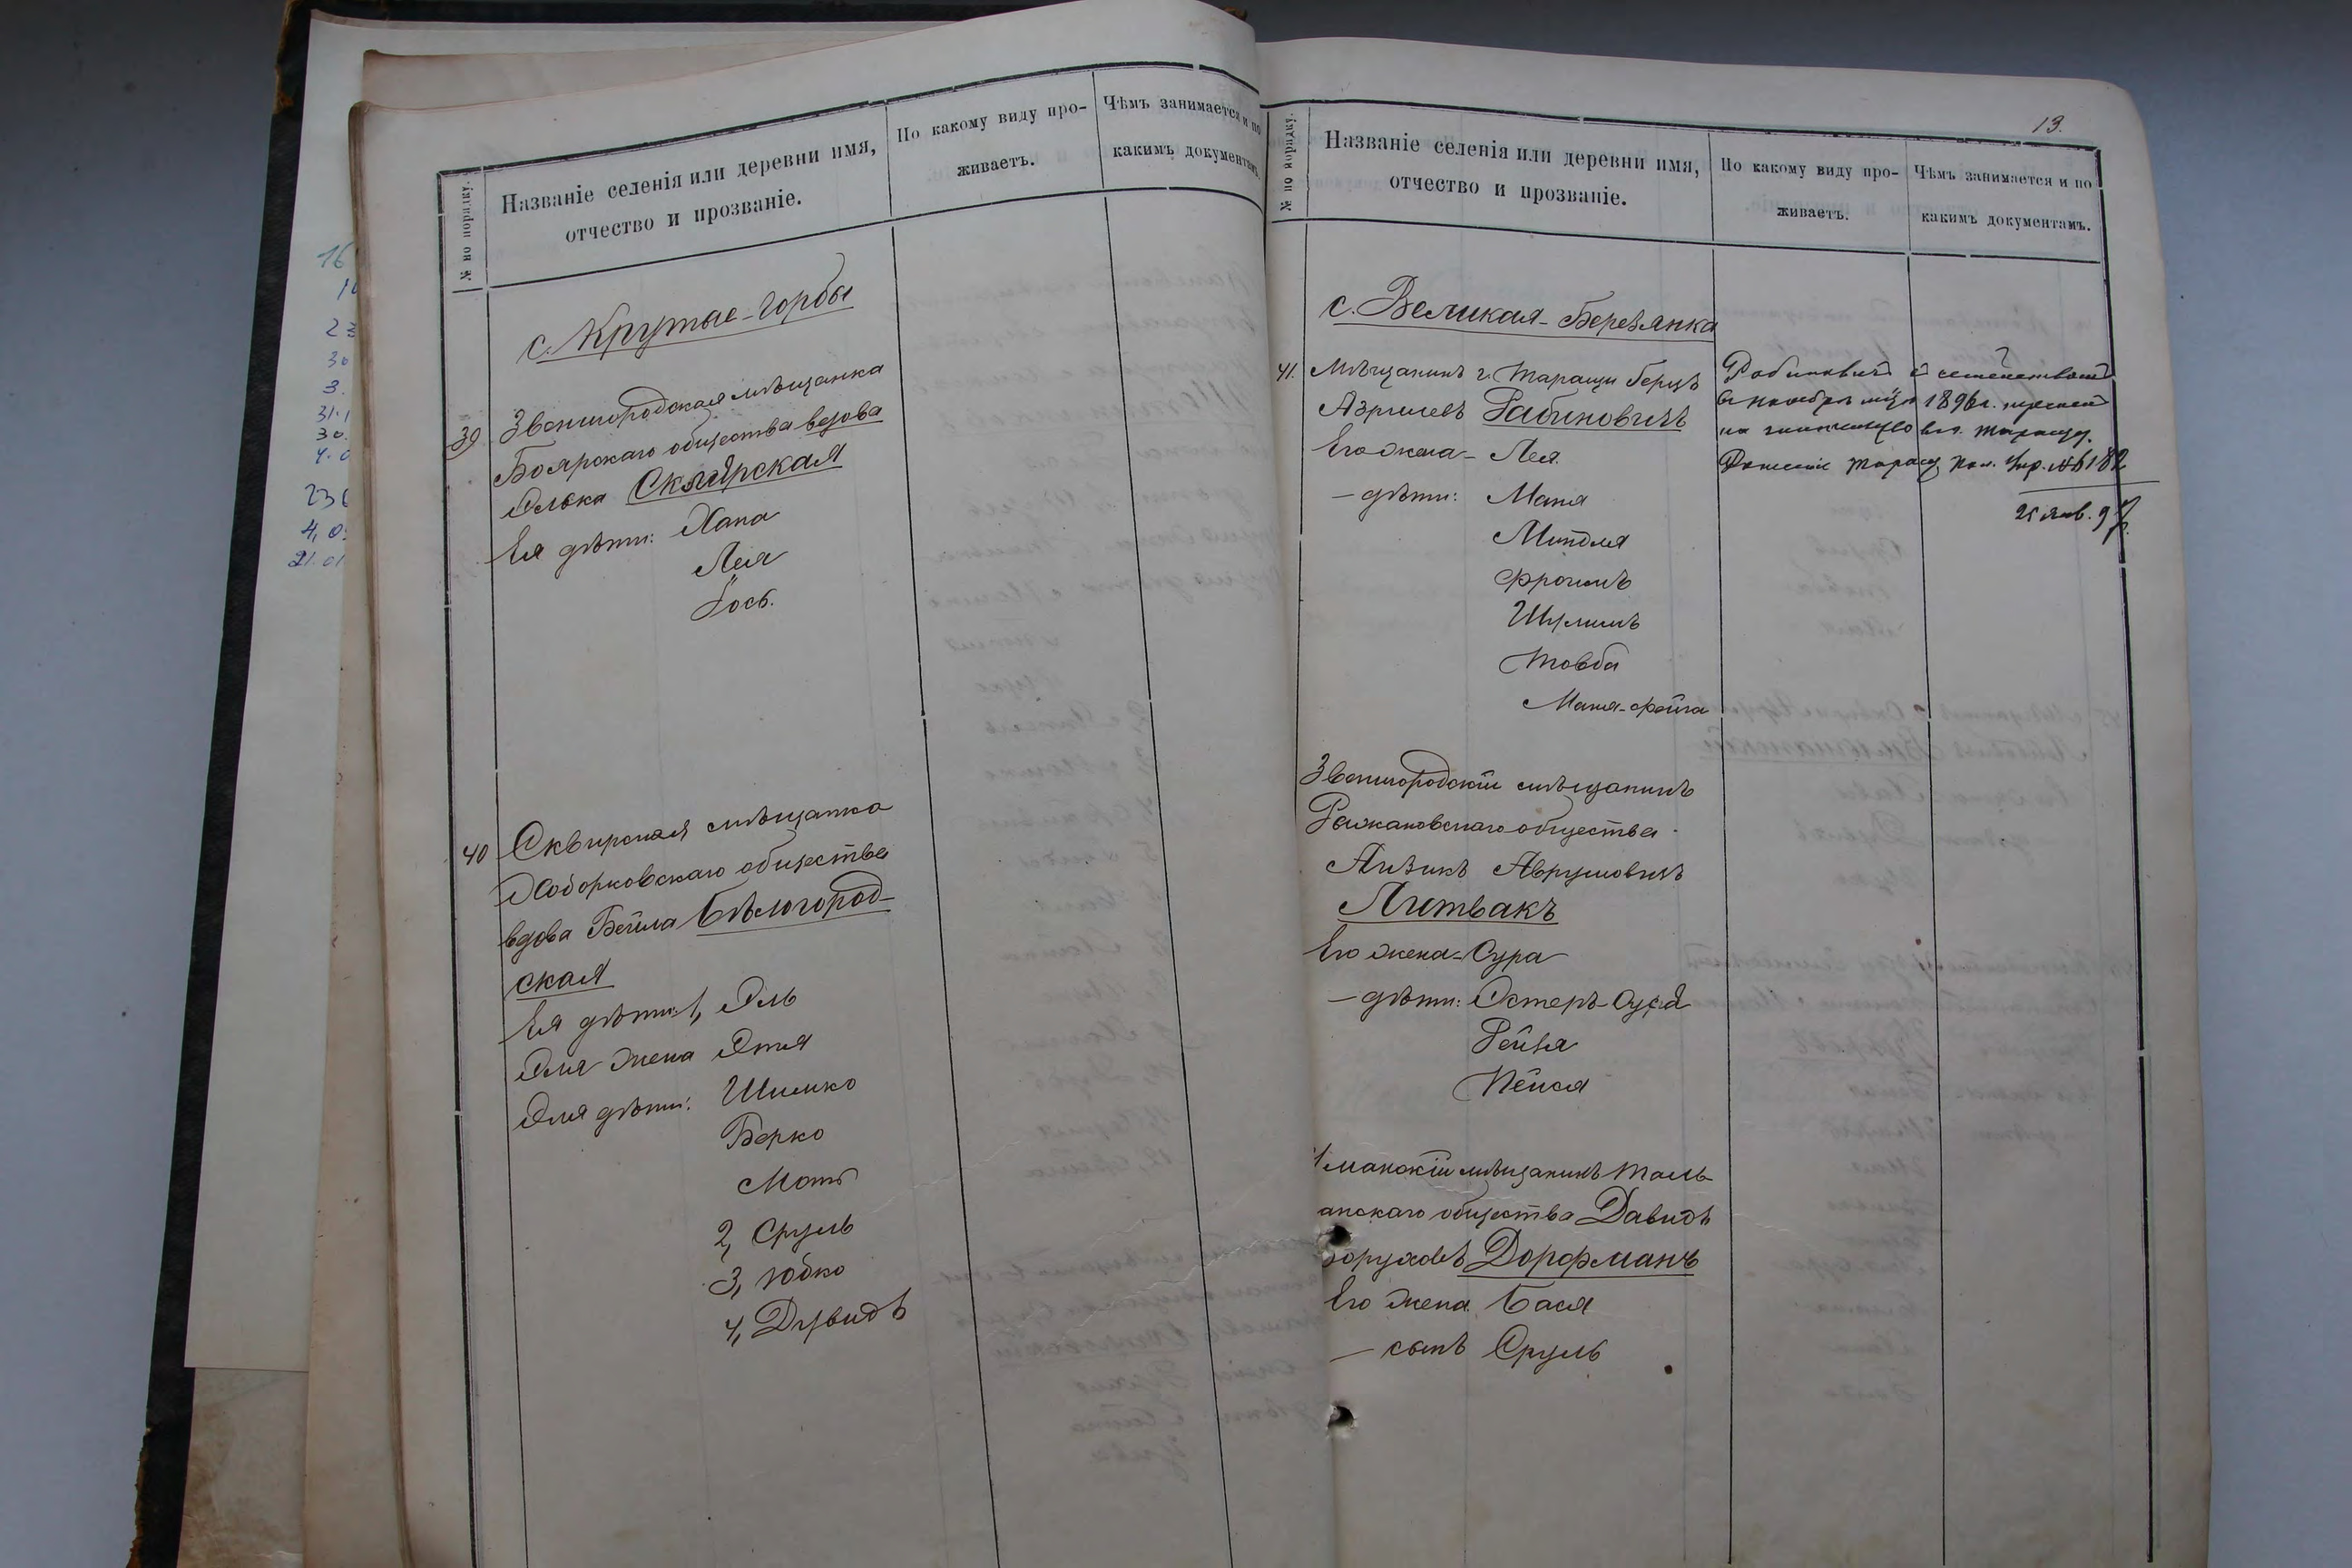 16
10
23
30
3.
31.1
30.
4.0
236
4,0.
21.01
№ по порядку.
Названіе селенія или деревни имя,
отчество и прозваніе.
По какому виду про-
живаетъ.
Чѣмъ занимается и по
какимъ документамъ.
с. Крутые-Горбы
39 Звенигородская мѣщанка
Боярскаго общества вдова
Элька Склярская
Ея дѣти: Хана
Лея
Іось.
40 Сквирская мѣщанка
Ходорковскаго общества
вдова Бейла Бѣлогород-
ская
Ея дѣти: 1, Эль
Эля жена Этя
Эля дѣти: Шимко
Берко
Мотъ
2, Сруль
3, Юдко
4, Дувидъ
13.
№ по порядку.
Названіе селенія или деревни имя,
отчество и прозваніе.
По какому виду про-
живаетъ.
Чѣмъ занимается и по
какимъ документамъ.
с. Великая-Березянка
41. Мѣщанинъ г. Таращи Берцъ
Азрилевъ Рабиновичъ
Его жена - Лея.
— дѣти: Маня
Миндля
Фроимъ
Шулимъ
Товба
Маня-Фейга
Рабиновичъ с семействомъ
въ ноябрѣ м-цѣ 1896 г.
на жительство в г. Таращу.
Таращ. Пол. Упр. № 182
25 янв. 97 г.
Звенигородскій мѣщанинъ
Рыжановскаго общества
Айзикъ Аврумовичъ
Литвакъ
Его жена - Сура
— дѣти: Эстеръ-Суся
Рейзя
Пейся
Уманскій мѣщанинъ Таль-
янскаго общества Давидъ
Боруховъ Дорфманъ
Его жена Бася
— сынъ Сруль